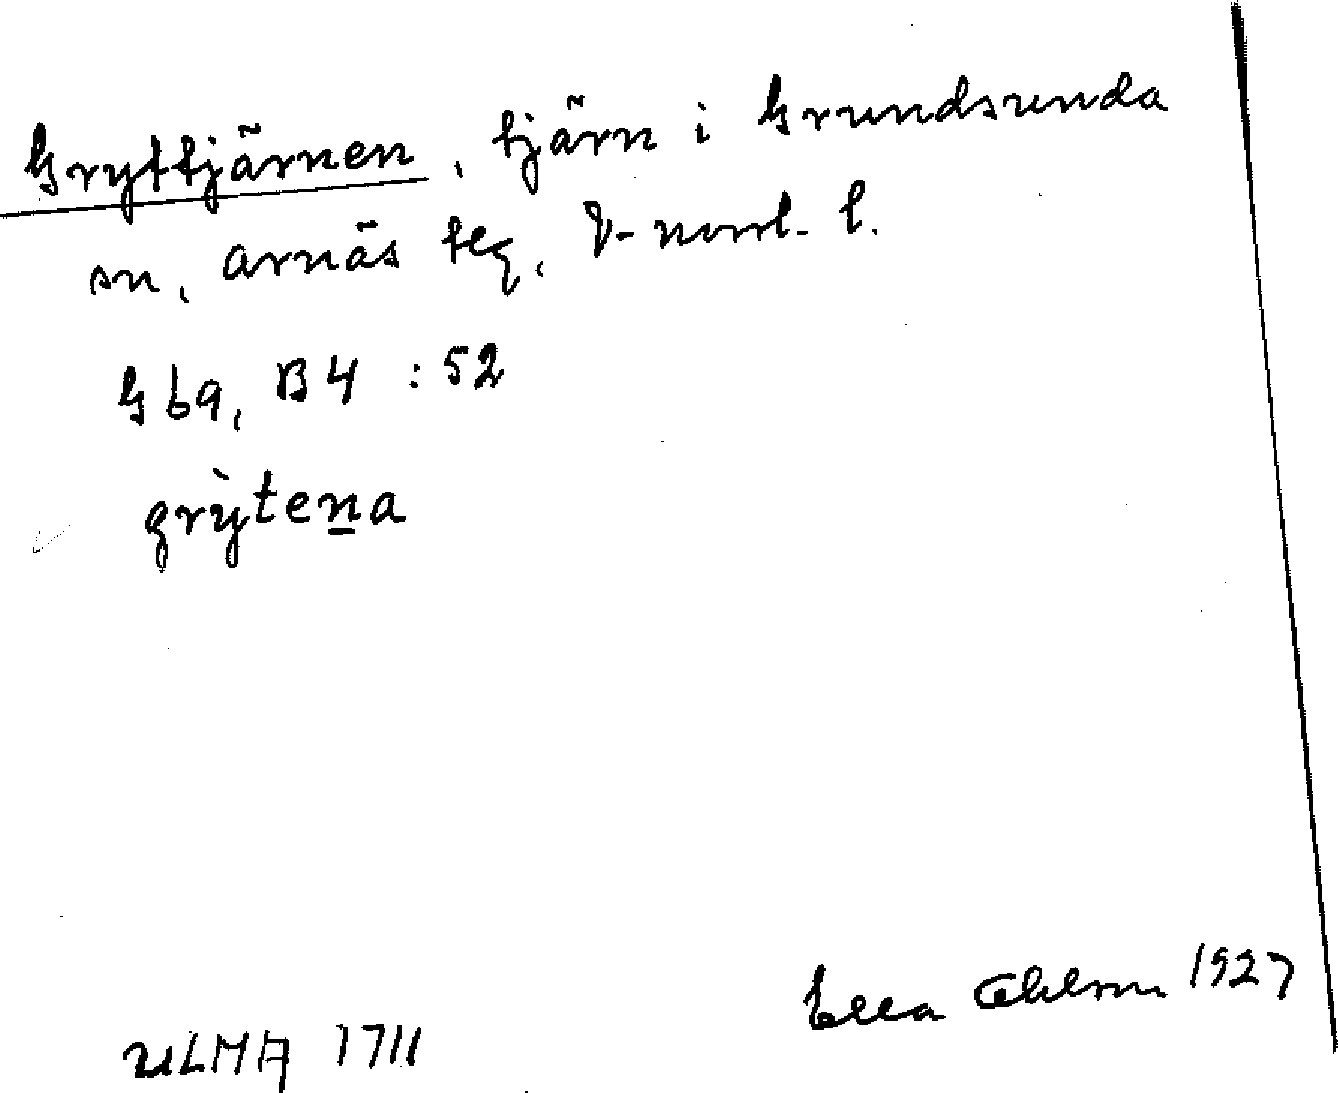 Gryttjärnen, tjärn i Grundsunda
sn, Arnäs tlg, V-norrl. l.
G69, B4 : 52
grỳtena
Ella Ohlson 1927
ULMA 1711